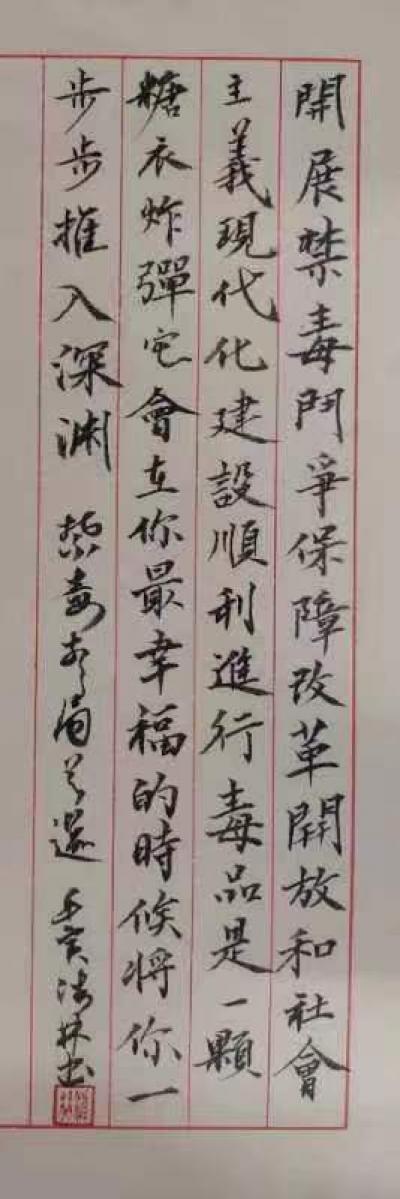 開展禁毒鬥爭保障改革開放和社會
主義現代化建設順利進行毒品是一顆
糖衣炸彈它會在你最幸福的時候將你一
步步推入深淵 禁毒 壬寅 林書